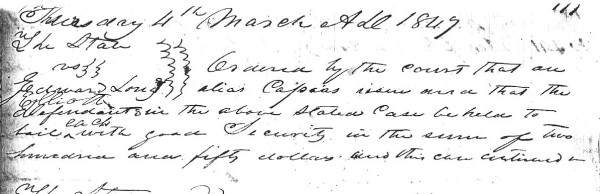 Thursday 4th March A D 1847
The State
vs Ordered by the court that an
Edward Long alias Capias issue and that the
defendants in the above Stated Case be held to
bail each with good Security in the sum of two
hundred and fifty dollars and this case continued